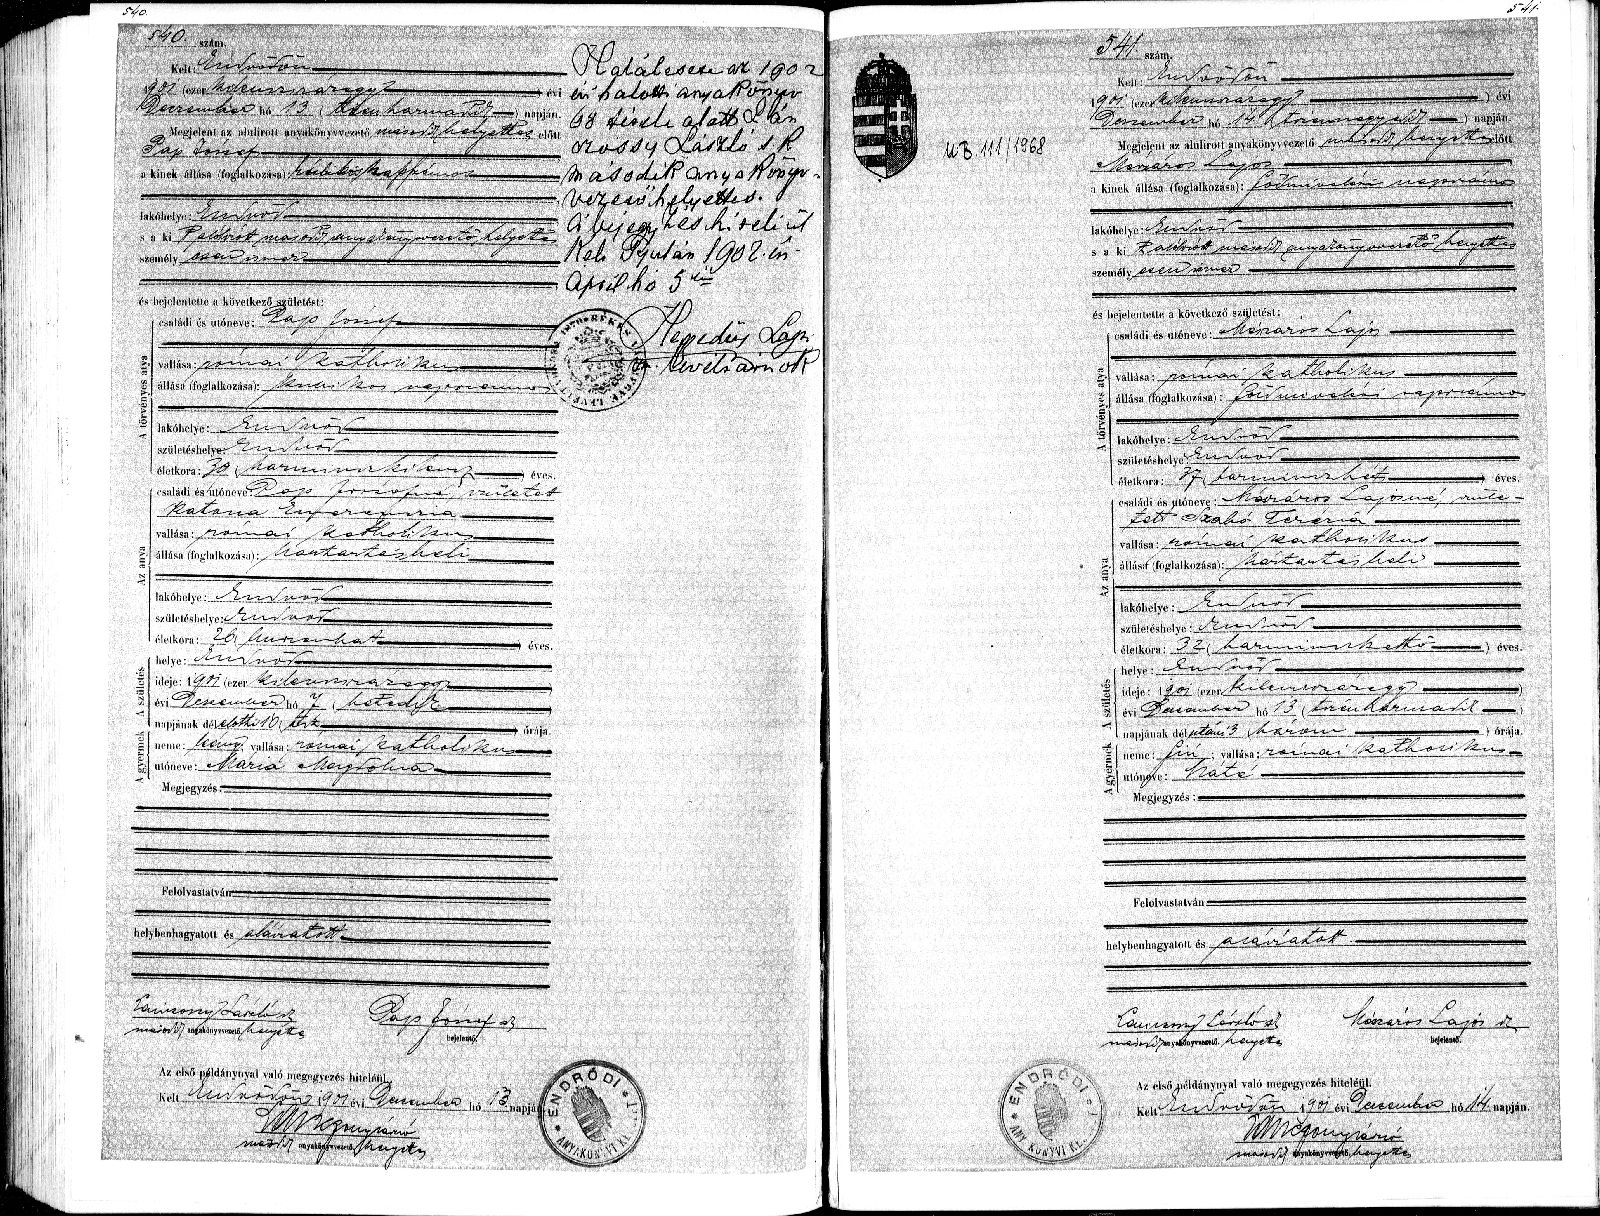 540.
540. szám.
Kelt: Endrődön
1901 (ezerkilenczszázegy) évi
Deczember hó 13 (tizenharmadik) napján.
Megjelent az alulirott anyakönyvvezető másodh. helyettes előtt
Pap József
a kinek állása (foglalkozása):
lakóhelye: Endrőd
s a ki alulirott másodh. anyakönyvvezető helyettes
személyesen ismer
és bejelentette a következő születést:
A törvényes atya
családi és utóneve: Pap József
vallása: római katholikus
állása (foglalkozása): napszámos
lakóhelye: Endrőd
születéshelye: Endrőd
életkora: 39 (harminczkilencz) éves.
Az anya
családi és utóneve: Pap Józsefné, született
Katona
vallása: római katholikus
állása (foglalkozása): háztartásbeli
lakóhelye: Endrőd
születéshelye: Endrőd
életkora: 26 (huszonhat) éves.
A születés
helye: Endrőd
ideje: 1901 (ezerkilenczszázegy)
évi Deczember hó 7 (hetedik)
napjának délelőtti 10 (tíz) órája.
A gyermek
neme: leány; vallása: római katholikus
utóneve: Mária Magdolna
Megjegyzés:
Felolvastatván
helybenhagyatott és aláíratott
László sk Pap József sk
másodh. anyakönyvvezető helyettes bejelentő.
Az első példánynyal való megegyezés hiteléül.
Kelt Endrődön 1901 évi Deczember hó 13 napján
másodh. anyakönyvvezető helyettes
ENDRŐDI ANYAKÖNYVI KER.
Halálesete az 1902
évi halotti anyakönyv
68 tétele alatt Lán
László s.k.
második anyakönyv-
vezetőhelyettes.
A bejegyzés hiteléül
Kelt Gyulán 1902. évi
április hó 5 én
Hegedüs Lajos
levéltárnok
BÉKÉS
541.
541. szám.
MB 111/1968
Kelt: Endrődön
1901 (ezerkilenczszázegy) évi
Deczember hó 14 (tizennegyedik) napján.
Megjelent az alulirott anyakönyvvezető másodh. helyettes előtt
Mészáros Lajos
a kinek állása (foglalkozása): földmívelési napszámos
lakóhelye: Endrőd
s a ki alulirott másodh. anyakönyvvezető helyettes
személyesen ismer
és bejelentette a következő születést:
A törvényes atya
családi és utóneve: Mészáros Lajos
vallása: római katholikus
állása (foglalkozása): földmívelési napszámos
lakóhelye: Endrőd
születéshelye: Endrőd
életkora: 37 (harminczhét) éves.
Az anya
családi és utóneve: Mészáros Lajosné, szüle-
tett Szabó Terézia
vallása: római katholikus
állása (foglalkozása): háztartásbeli
lakóhelye: Endrőd
születéshelye: Endrőd
életkora: 32 (harminczkettő) éves.
A születés
helye: Endrőd
ideje: 1901 (ezerkilenczszázegy)
évi Deczember hó 13 (tizenharmadik)
napjának délutáni 3 (három) órája.
A gyermek
neme: fiú; vallása: római katholikus
utóneve: Máté
Megjegyzés:
Felolvastatván
helybenhagyatott és aláíratott
László sk Mészáros Lajos sk
másodh. anyakönyvvezető helyettes bejelentő.
Az első példánynyal való megegyezés hiteléül.
Kelt Endrődön 1901 évi Deczember hó 14 napján.
másodh. anyakönyvvezető helyettes
ENDRŐDI ANYAKÖNYVI KER.